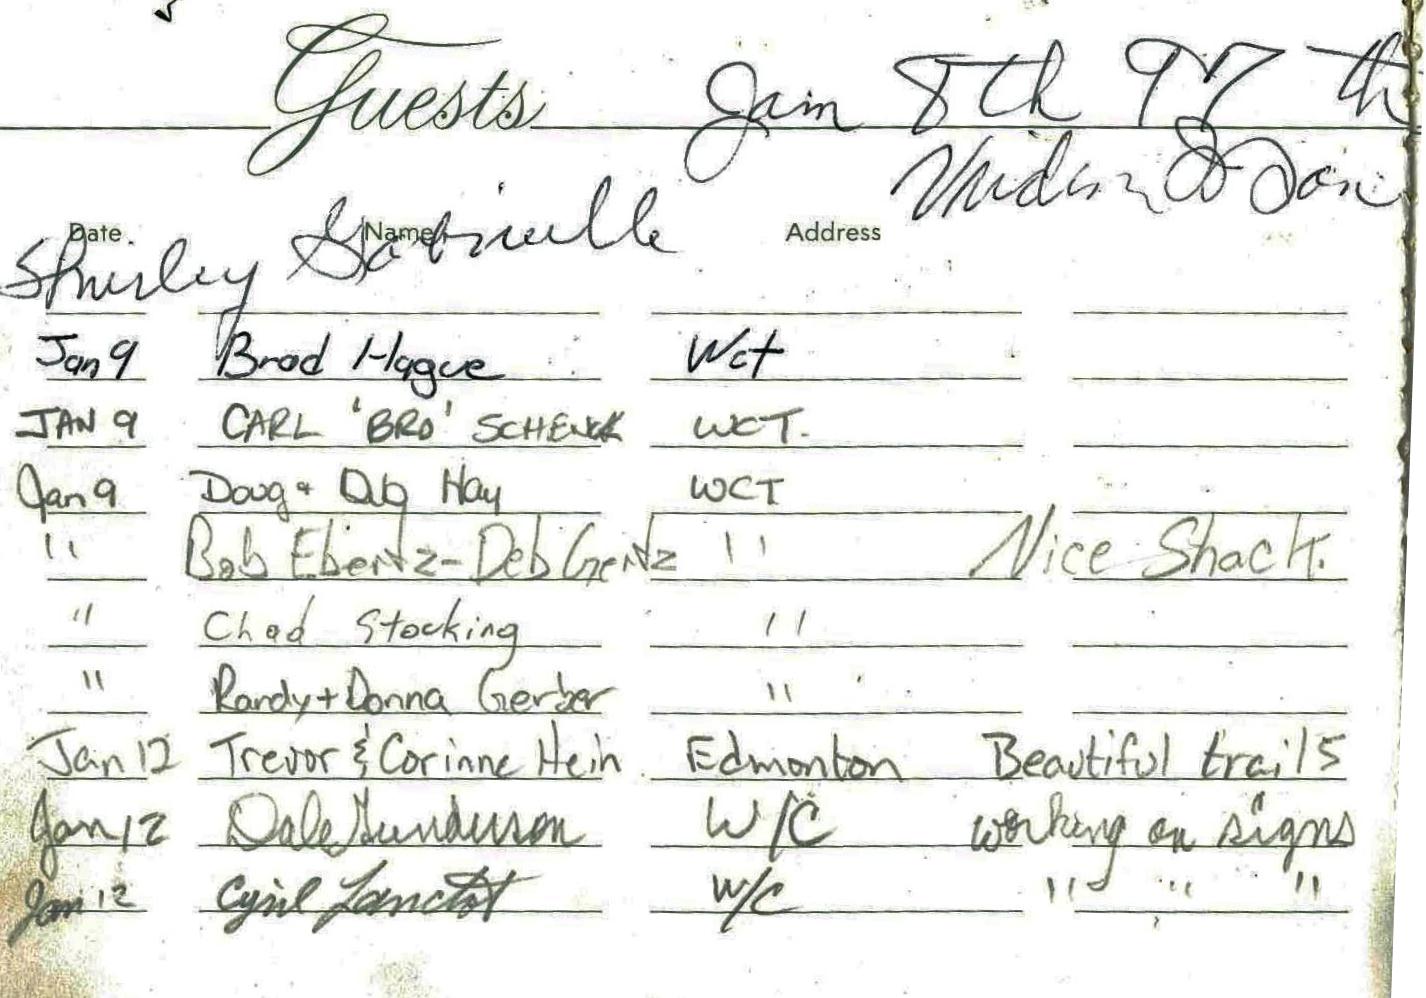 Guests Jan 8th 97 th
& Don
Date Name Address
Shirley Gabrielle
Jan 9 Brad Hague Wct
JAN 9 CARL 'BRO' SCHENCK WCT.
Jan 9 Doug + Deb Hay WCT
" Bob Ebertz-Deb Gertz " Nice Shack.
" Chad Stocking "
" Randy + Donna Gerber "
Jan 12 Trevor & Corinne Hein Edmonton Beautiful trails
Jan 12 Dale Gunderson W/C working on signs
Jan 12 Cyril Lanctot W/C " " "